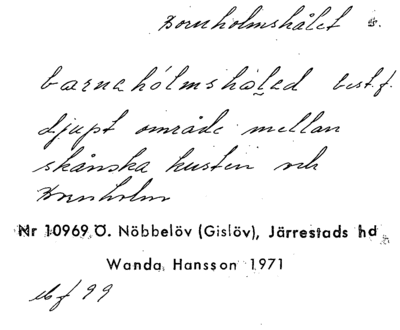 Bornholmshålet
barnehólmshåled best. f.
djupt område mellan
skånska kusten och
Bornholm
Nr 10969 Ö. Nöbbelöv (Gislöv), Järrestads hd
Wanda Hansson 1971
99